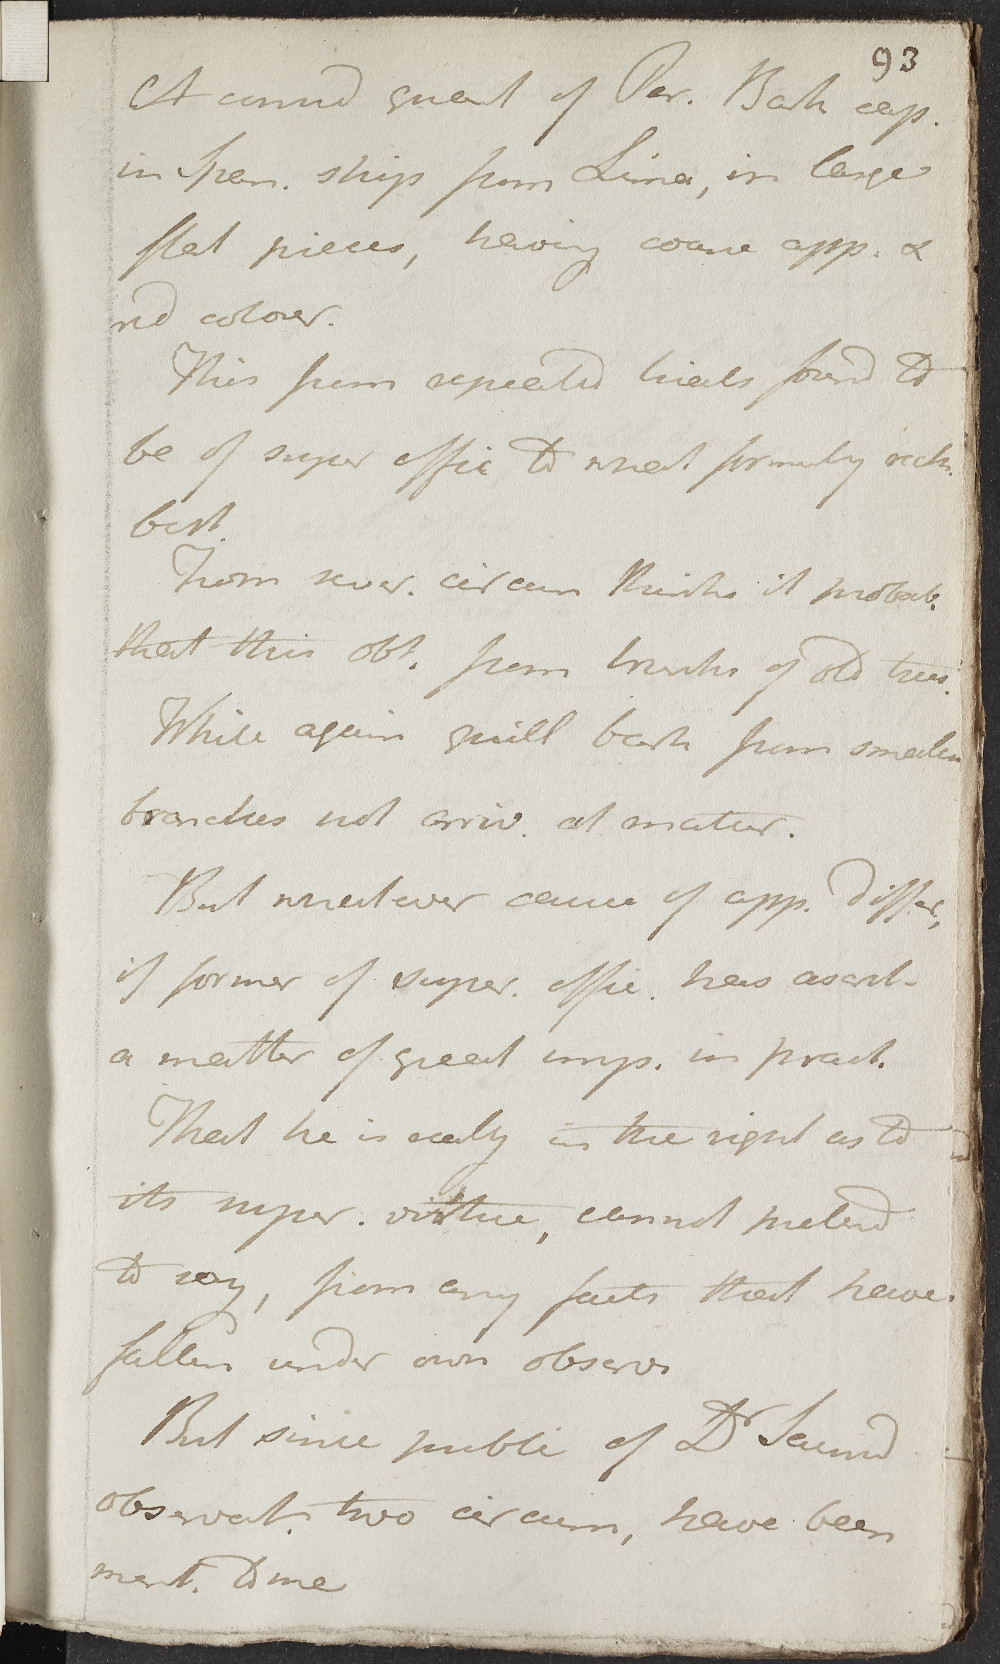 93
A consid quant of Per. Bark cap.
in Span. ship from Lima, in large
flat pieces, having coarse app. &
red colour.
This from repeated trials found to
be of super effic to what formerly reck.
best.
From sever. circum thinks it probab.
that this obt. from trunks of old trees.
While again quill bark from smaller
branches not arriv. at matur.
But whatever cause of app. differ,
if former of super. effic. has assert-
a matter of great imp. in pract.
That he is really in the right as to
its super. virtue, cannot pretend
to say, from any facts that have
fallen under own observ
But since public of Dr Saund
observat. two circum, have been
ment. to me